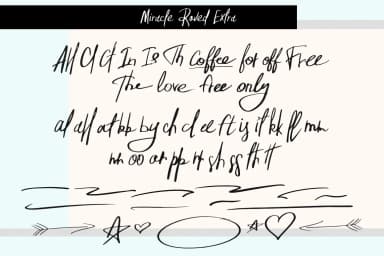 Miracle Roved Extra
All Cl Ct In Is Th Coffee for off Free
The love free only
al all at bb by ch cl ee ft is it kk ll mm
nn oo or pp rt sh ss th tt